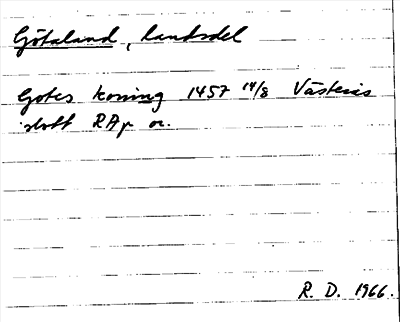 Götaland, landsdel
Gotes koning 1457 14/8 Västerås
slott RAp or.
R. D. 1966.